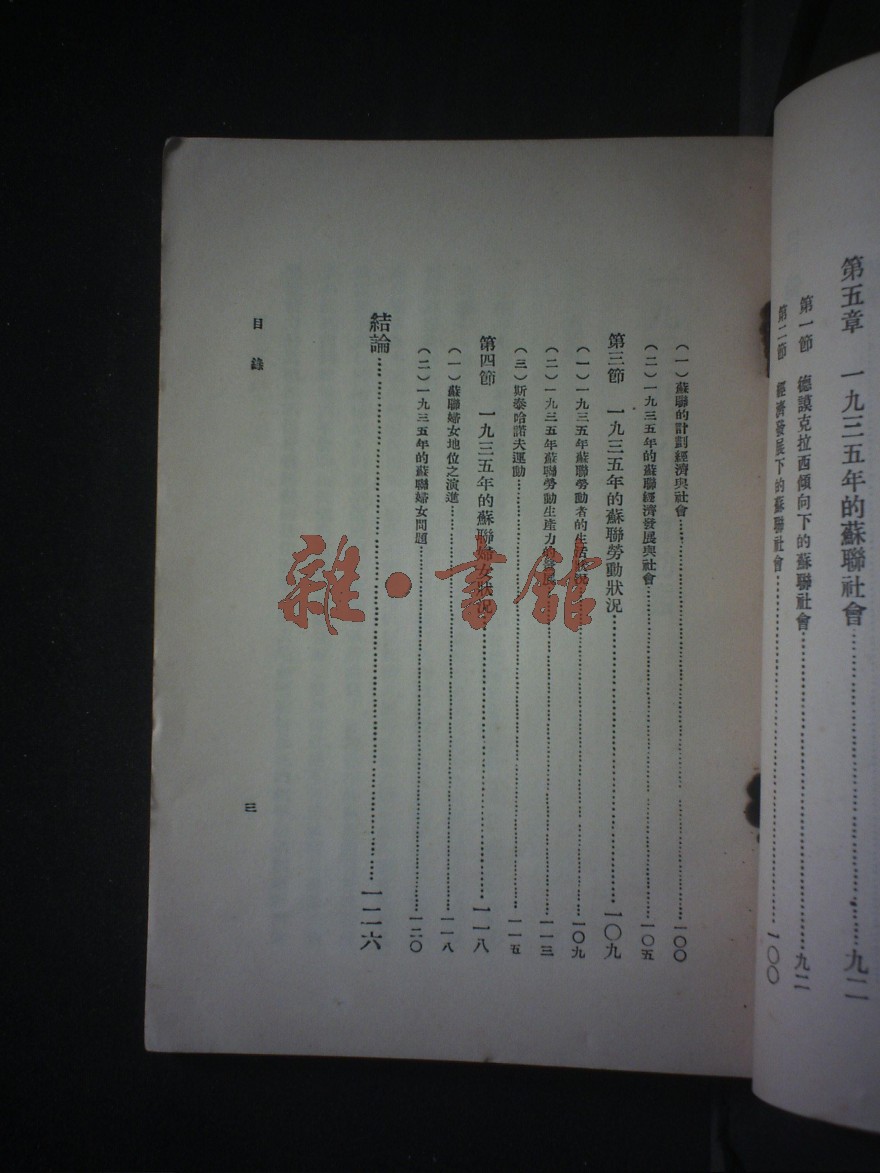 第五章　一九三五年的蘇聯社會……九二
第一節　德謨克拉西傾向下的蘇聯社會……九二
第二節　經濟發展下的蘇聯社會……一〇〇
（一）蘇聯的計劃經濟與社會……一〇〇
（二）一九三五年的蘇聯經濟發展與社會……一〇五
第三節　一九三五年的蘇聯勞動狀況……一〇九
（一）一九三五年蘇聯勞動者的生活狀況……一〇九
（二）一九三五年蘇聯勞動生產力的發展……一一三
（三）斯泰哈諾夫運動……一一五
第四節　一九三五年的蘇聯婦女狀況……一一八
（一）蘇聯婦女地位之演進……一一八
（二）一九三五年的蘇聯婦女問題……一二〇
結論……一二六
目錄
三
雜·書館